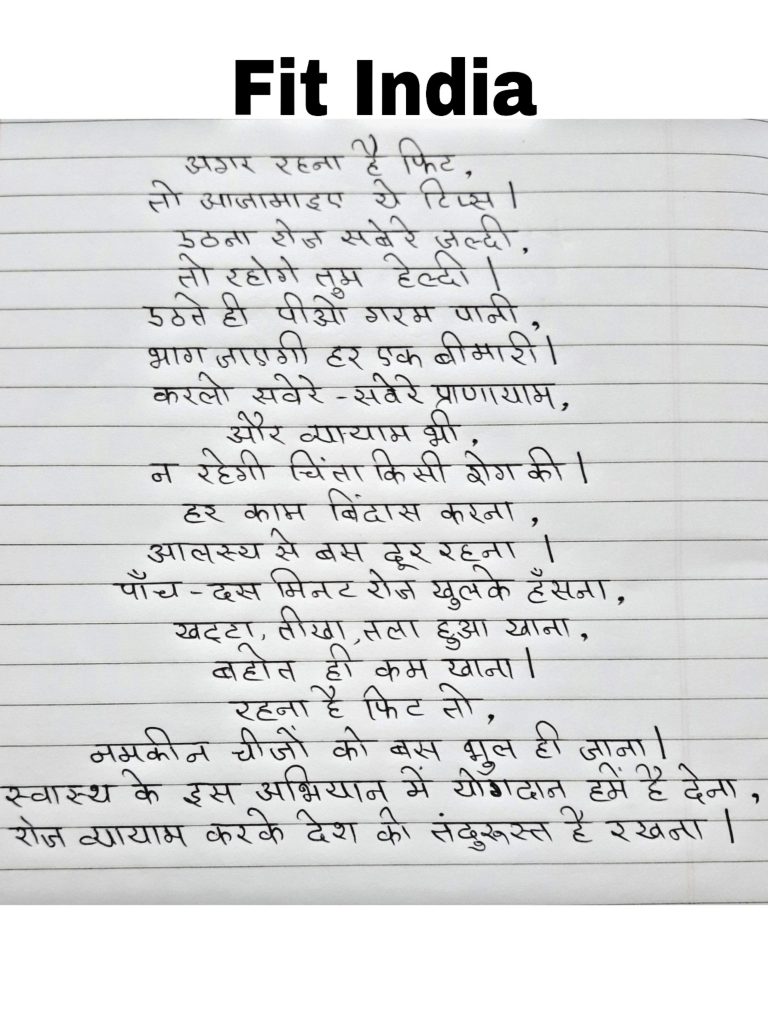 Fit India
अगर रहना है फिट,
तो आजामाइए ये टिप्स।
उठना रोज सबेरे जल्दी,
तो रहोगे तुम हेल्दी।
उठते ही पीओ गरम पानी,
भाग जाएगी हर एक बीमारी।
करलो सवेरे-सवेरे प्राणायाम,
और व्यायाम भी,
न रहेगी चिंता किसी रोग की।
हर काम बिंदास करना,
आलस्य से बस दूर रहना।
पाँच-दस मिनट रोज खुलके हँसना,
खट्टा, तीखा, तला हुआ खाना,
बहोत ही कम खाना।
रहना है फिट तो,
नमकीन चीजों को बस भुल ही जाना।
स्वास्थ के इस अभियान में योगदान हमें है देना,
रोज व्यायाम करके देश को तंदुरूस्त है रखना।